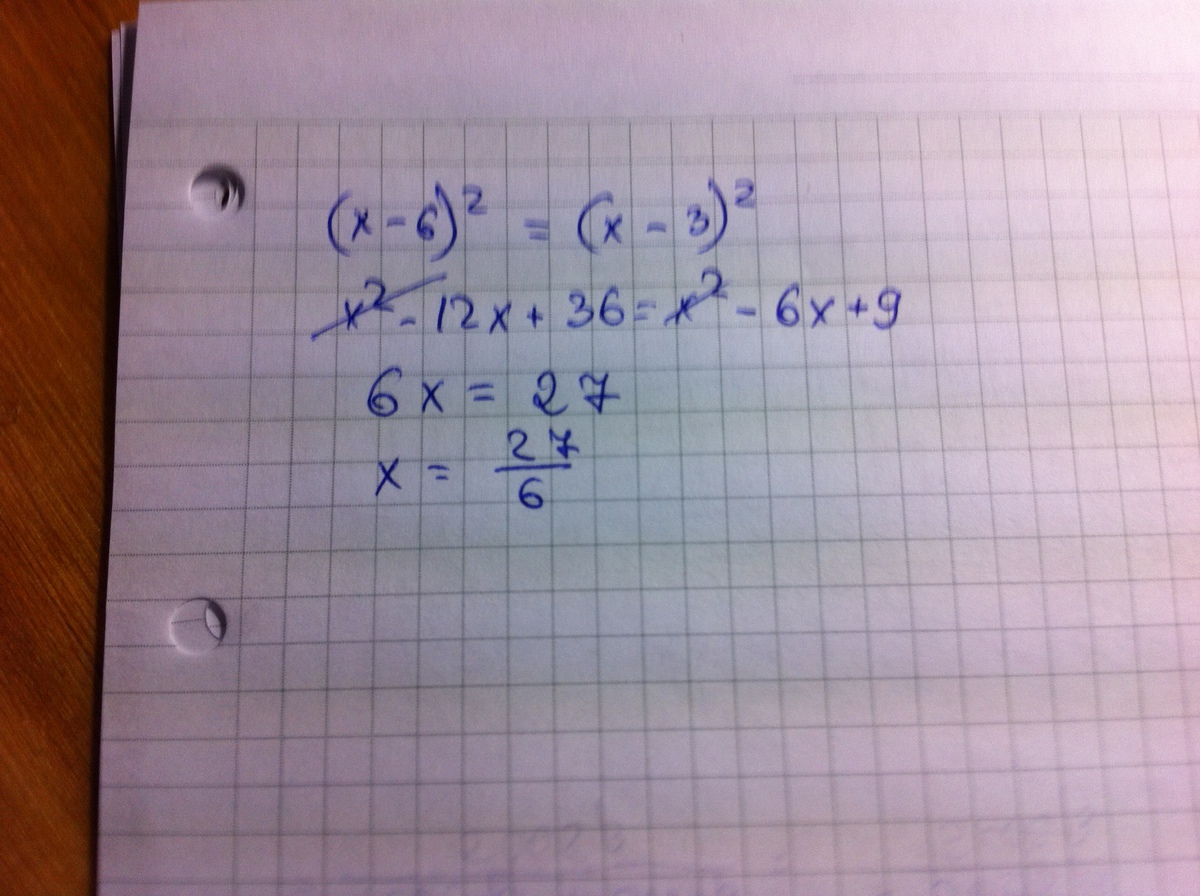 (x - 6)² = (x - 3)²
x² - 12x + 36 = x² - 6x + 9
6x = 27
x = 27/6